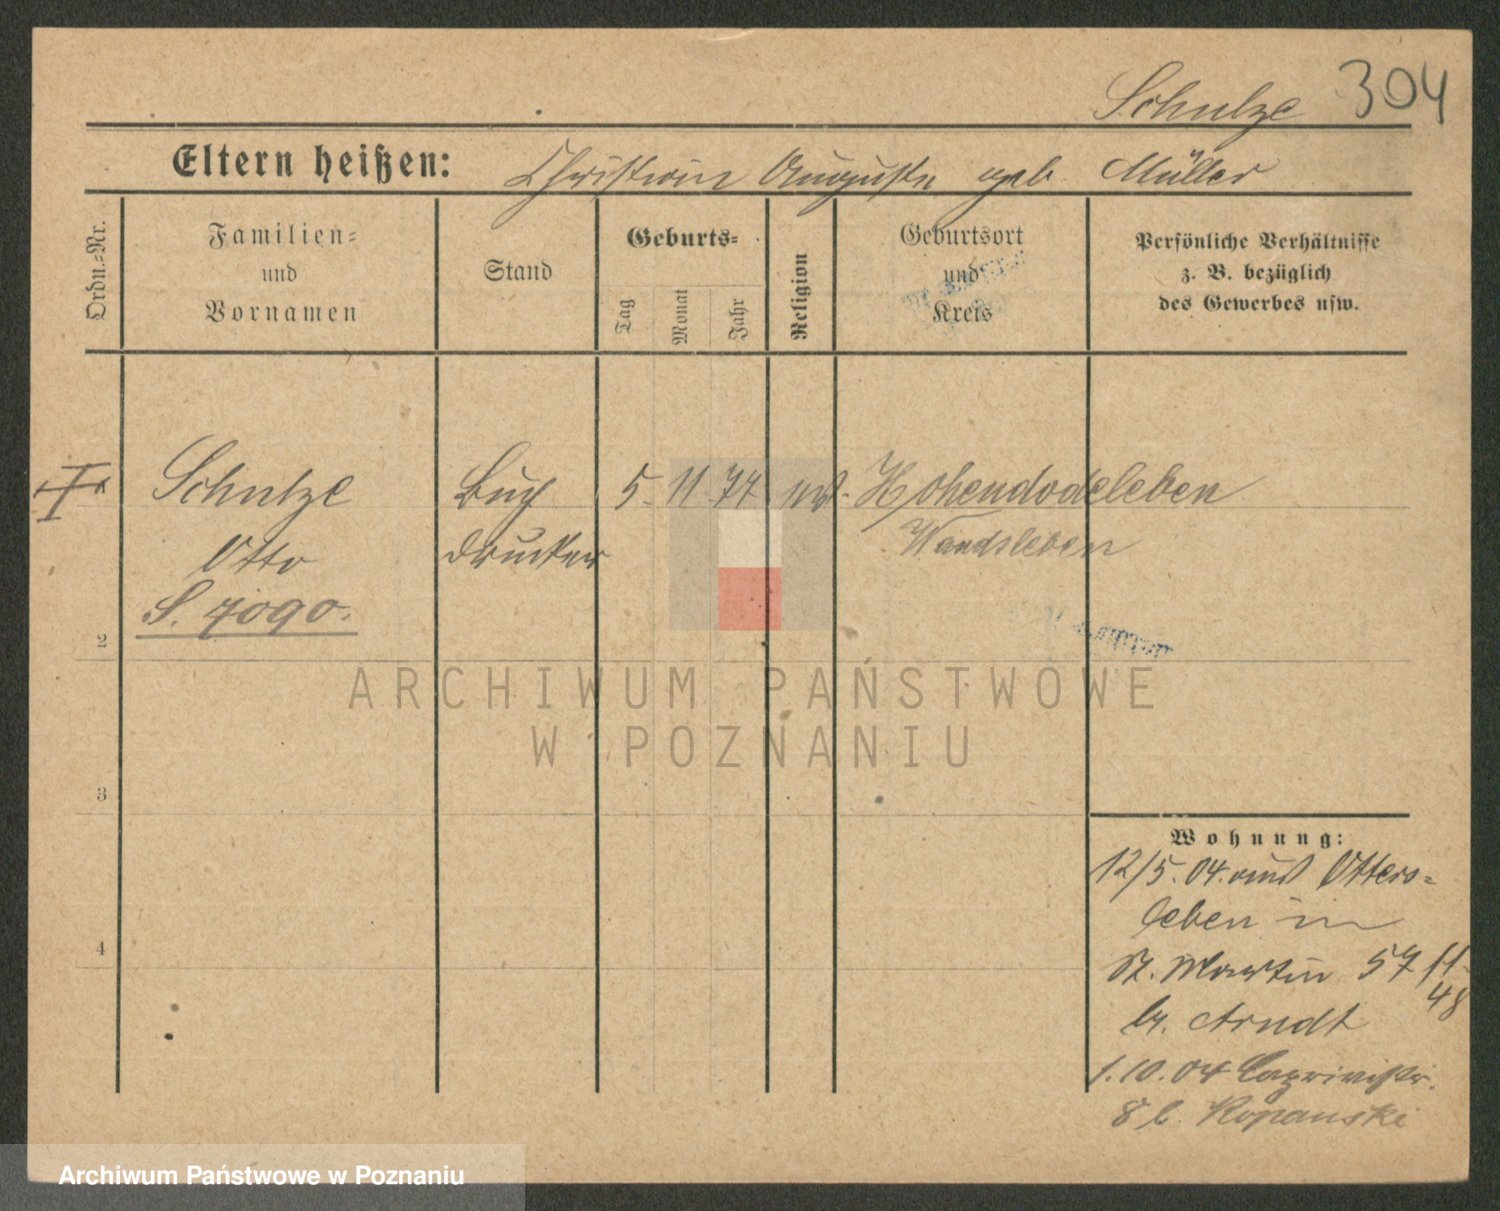 Schulze 304
Eltern heißen: Christian Auguste geb. Müller
Ordn.=Nr.
Familien=
und
Vornamen
Stand
Geburts=
Tag
Monat
Jahr
Religion
Geburtsort
und
Kreis
Persönliche Verhältnisse
z. B. bezüglich
des Gewerbes usw.
Schulze
Otto
S. 7090.
Buch
drucker
5. 11 77
Hohendodeleben
Wandsleben
2
3
4
Wohnung:
12/5. 04. aus Otters=
leben in
St. Martin 57 II
48
b. Arndt
1. 10. 04 Caprivistr.
8 b. Kopanski
ARCHIWUM PAŃSTWOWE
W POZNANIU
Archiwum Państwowe w Poznaniu